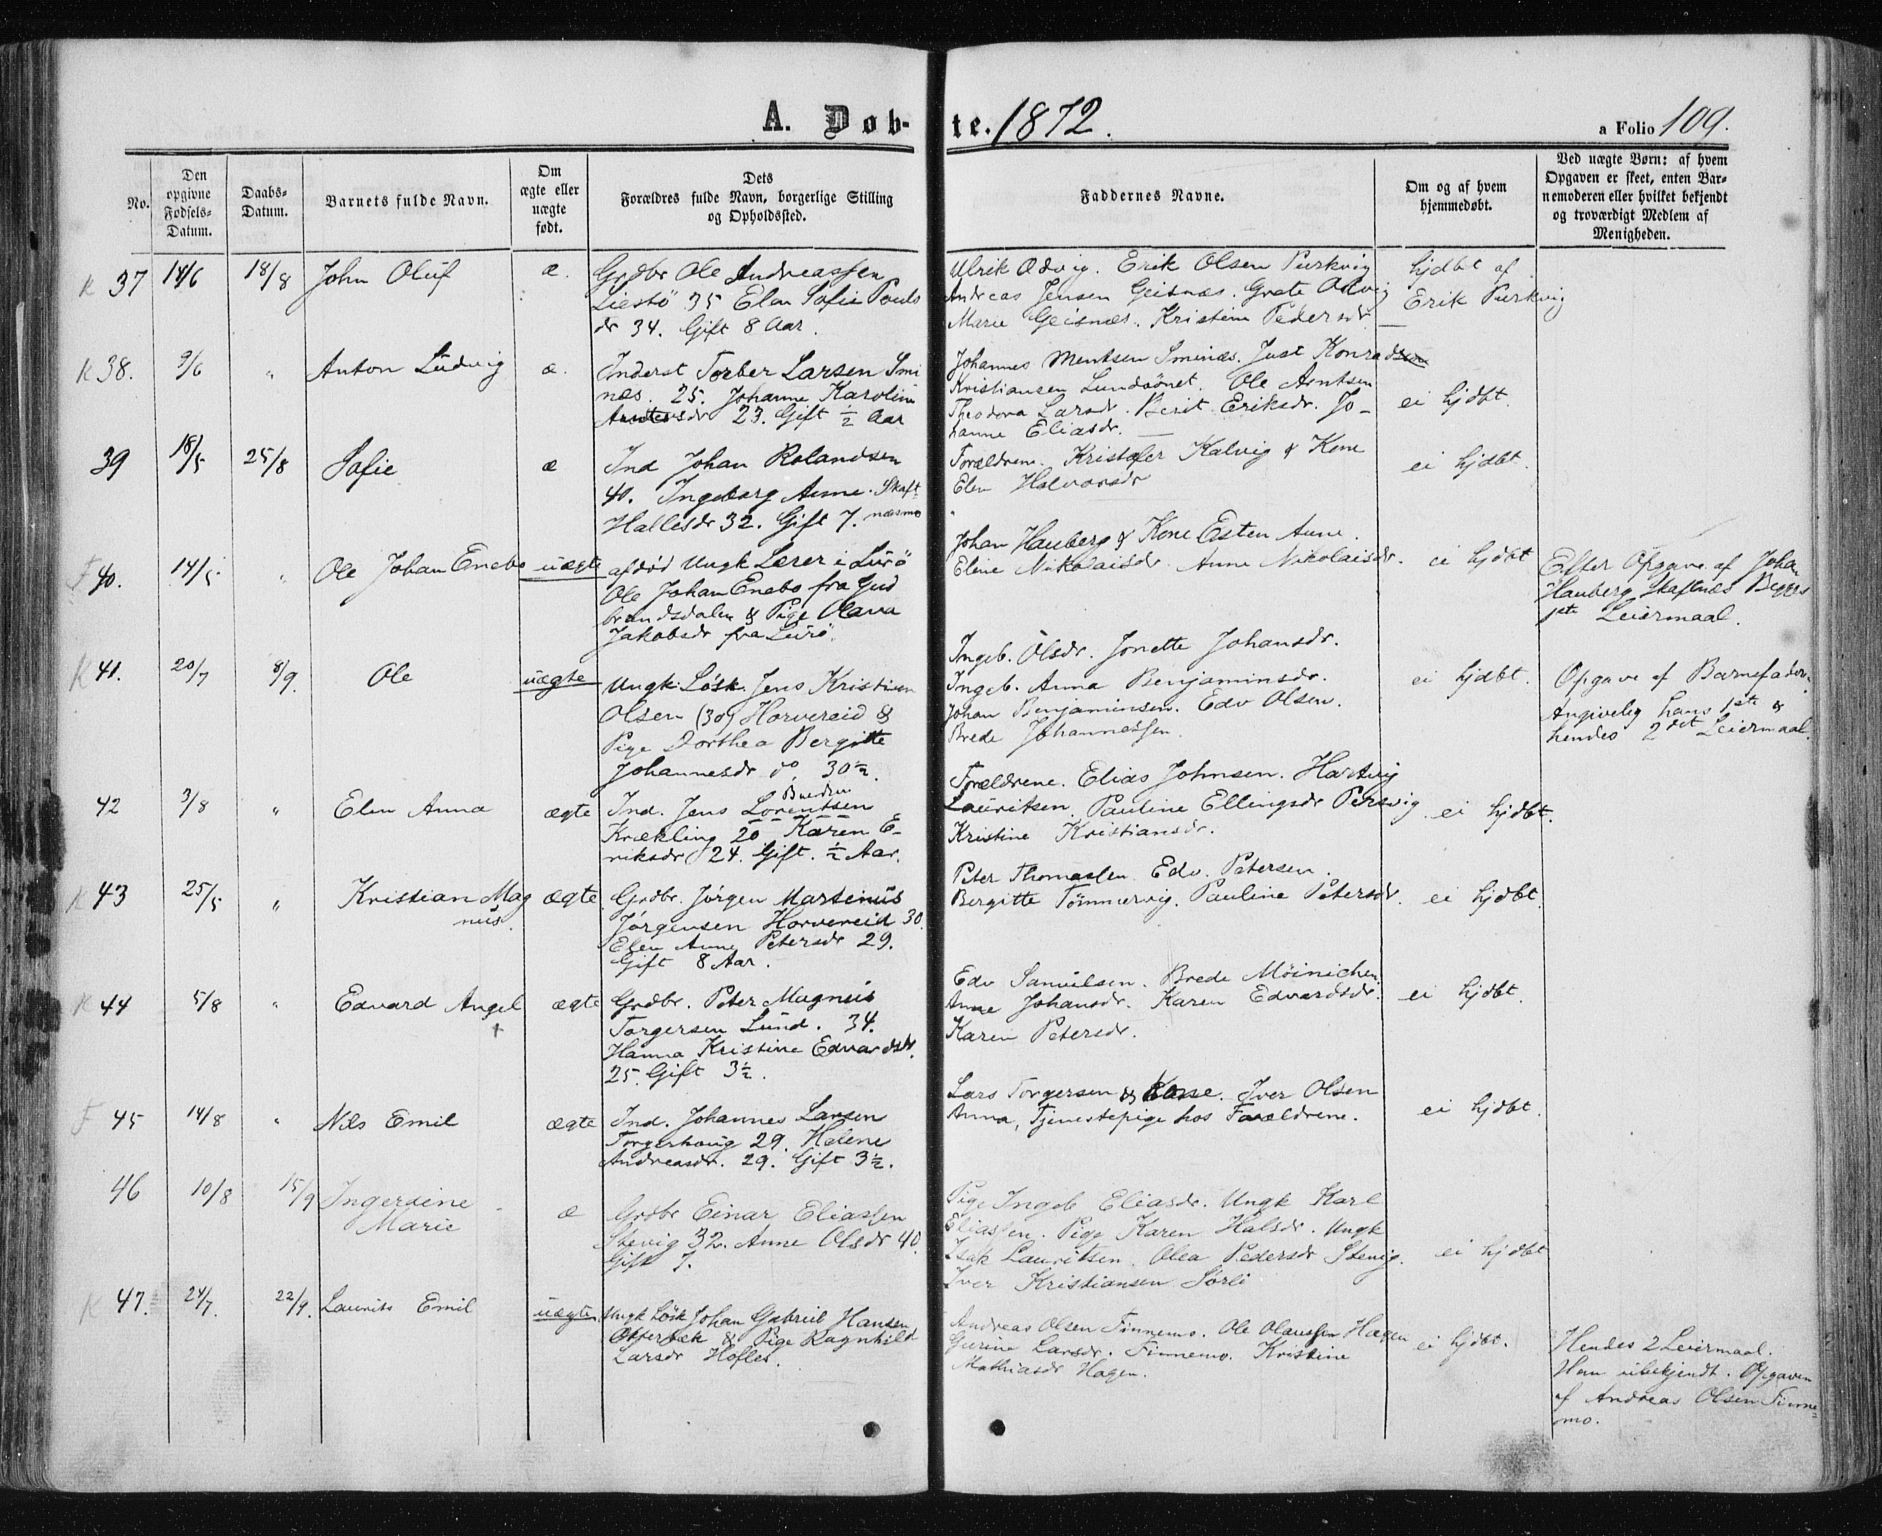 A. Døb-te. 1872.
a Folio 109.
No.
Den opgivne Fødsels-Datum.
Daabs-Datum.
Barnets fulde Navn.
Om ægte eller uægte født.
Dets Forældres fulde Navn, borgerlige Stilling og Opholdssted.
Faddernes Navne.
Om og af hvem hjemmedøbt.
Ved uægte Børn: af hvem Opgaven er skeet, enten Barnemoderen eller hvilket bekjendt og troværdigt Medlem af Menigheden.
K 37 14/6 18/8 John Oluf æ.
Grdbr Ole Andreassen
Liestö 35 Elen Sofie Pouls
dr 34. Gift 8 Aar.
Ulrik Odvig. Erik Olsen Purkvig
Andreas Jensen Geisnæs. Grete Odvig
Marie Geisnæs. Kristine Pedersdr.
hjdbt af
Erik Purkvig
K 38. 9/6 " Anton Ludvig æ.
Inderst Torber Larsen Smi
næs. 25. Johanne Karoline
Andersdr 23. Gift ½ Aar
Johannes Mentsen Sminæs. Just Konrad
Kristiansen Lundsönet. Ole Arntsen
Theodora Larsdr. Berit Eriksdr. Jo-
hanne Eliasdr.
ei hjdbt.
39 18/5 25/8 Sofie æ
Ind Johan Rolandsen
40. Ingeborg Anne Skaft
Hallesdr 32. Gift 7. næsmo
Forældrene. Kristofer Kalvig & Kone
Elen Halvorsdr
ei hjdbt.
F 40. 14/5 " Ole Johan Enebo uægte
afdød Ungk Lærer i Lurö
Ole Johan Enebo fra Gud
brandsdalen & Pige Olava
Jakobsdr fra Lurö.
Johan Hauberg & Kone Esten Anne.
Eline Nikolaisdr. Anne Nikolaisdr.
ei hjdbt
Efter Opgave af Johan
Hauberg Skaftnæs Begges
1ste Leiermaal.
K 41. 20/7 8/9. Ole uægte
Ungk. Løsk. Jens Kristian
Olsen (30) Horvereid &
Pige Dorthea Bergitte
Johannesdr do. 30½.
Ingeb. Olsdr. Jonette Johansdr.
Ingeb. Anna Benjaminsdr.
Johan Benjaminsen. Edv Olsen.
Brede Johannessen.
ei hjdbt.
Opgave af Barnefaderen.
Angivelig hans 1ste &
hendes 2det Leiermaal.
42 3/8 " Elen Anna ægte
Ind. Jens Lorentsen
Krækling 20 Karen E-
riksdr 24. Gift. ½ Aar.
Forældrene. Elias Johnsen. Hartvig
Lauritsen. Pauline Ellingsdr Persvig
Kristine Kristiansdr.
ei hjdbt.
K 43 25/5 " Kristian Mag
nus.
ægte
Grdbr. Jörgen Martinus
Jörgensen Horvereid 30.
Elen Anne Petersdr 29.
Gift 8 Aar.
Peter Thomassen. Edv. Petersen.
Bergitte Tömmervig. Pauline Petersdr.
ei hjdbt.
K 44 5/8 " Edvard Angel ægte
+
Grdbr. Peter Magnus
Torgersen Lund. 34.
Hanna Kristine Edvardsdr.
25. Gift 3½.
Edv Samuelsen. Brede Möinichen
Anne Johansdr. Karen Edvardsdr.
Karen Petersdr.
ei hjdbt.
F 45 14/8 " Nils Emil ægte
Ind. Johannes Larsen
Torgerhoug 29. Helene
Andreasdr. 29. Gift 3½.
Lars Torgersen & Kone. Iver Olsen
Anna, Tjenestepige hos Forældrene.
ei hjdbt.
46 10/8 15/9 Ingerdine
Marie
æ
Grdbr Einar Eliassen
Stevig 32. Anne Olsdr 40.
Gift 7.
Pige Ingeb Eliasdr. Ungk Karl
Eliassen. Pige Karen Halsdr. Ungk
Isak Lauritsen. Olea Pedersdr Stevig.
Iver Kristiansen Sörli
ei hjdbt
K 47. 24/7. 22/9. Laurits Emil uægte
Ungk Løsk Johan Gabriel Hansen
Otterbæk & Pige Ragnhild
Larsdr Hofles.
Andreas Olsen Finnemo. Ole Olaussen Hagen
Gurine Larsdr. Finnemo. Kristine
Mathiasdr Hagen.
ei hjdbt.
Hendes 2 Leiermaal.
Han ubekjendt. Opgaven
af Andreas Olsen Finne-
mo.